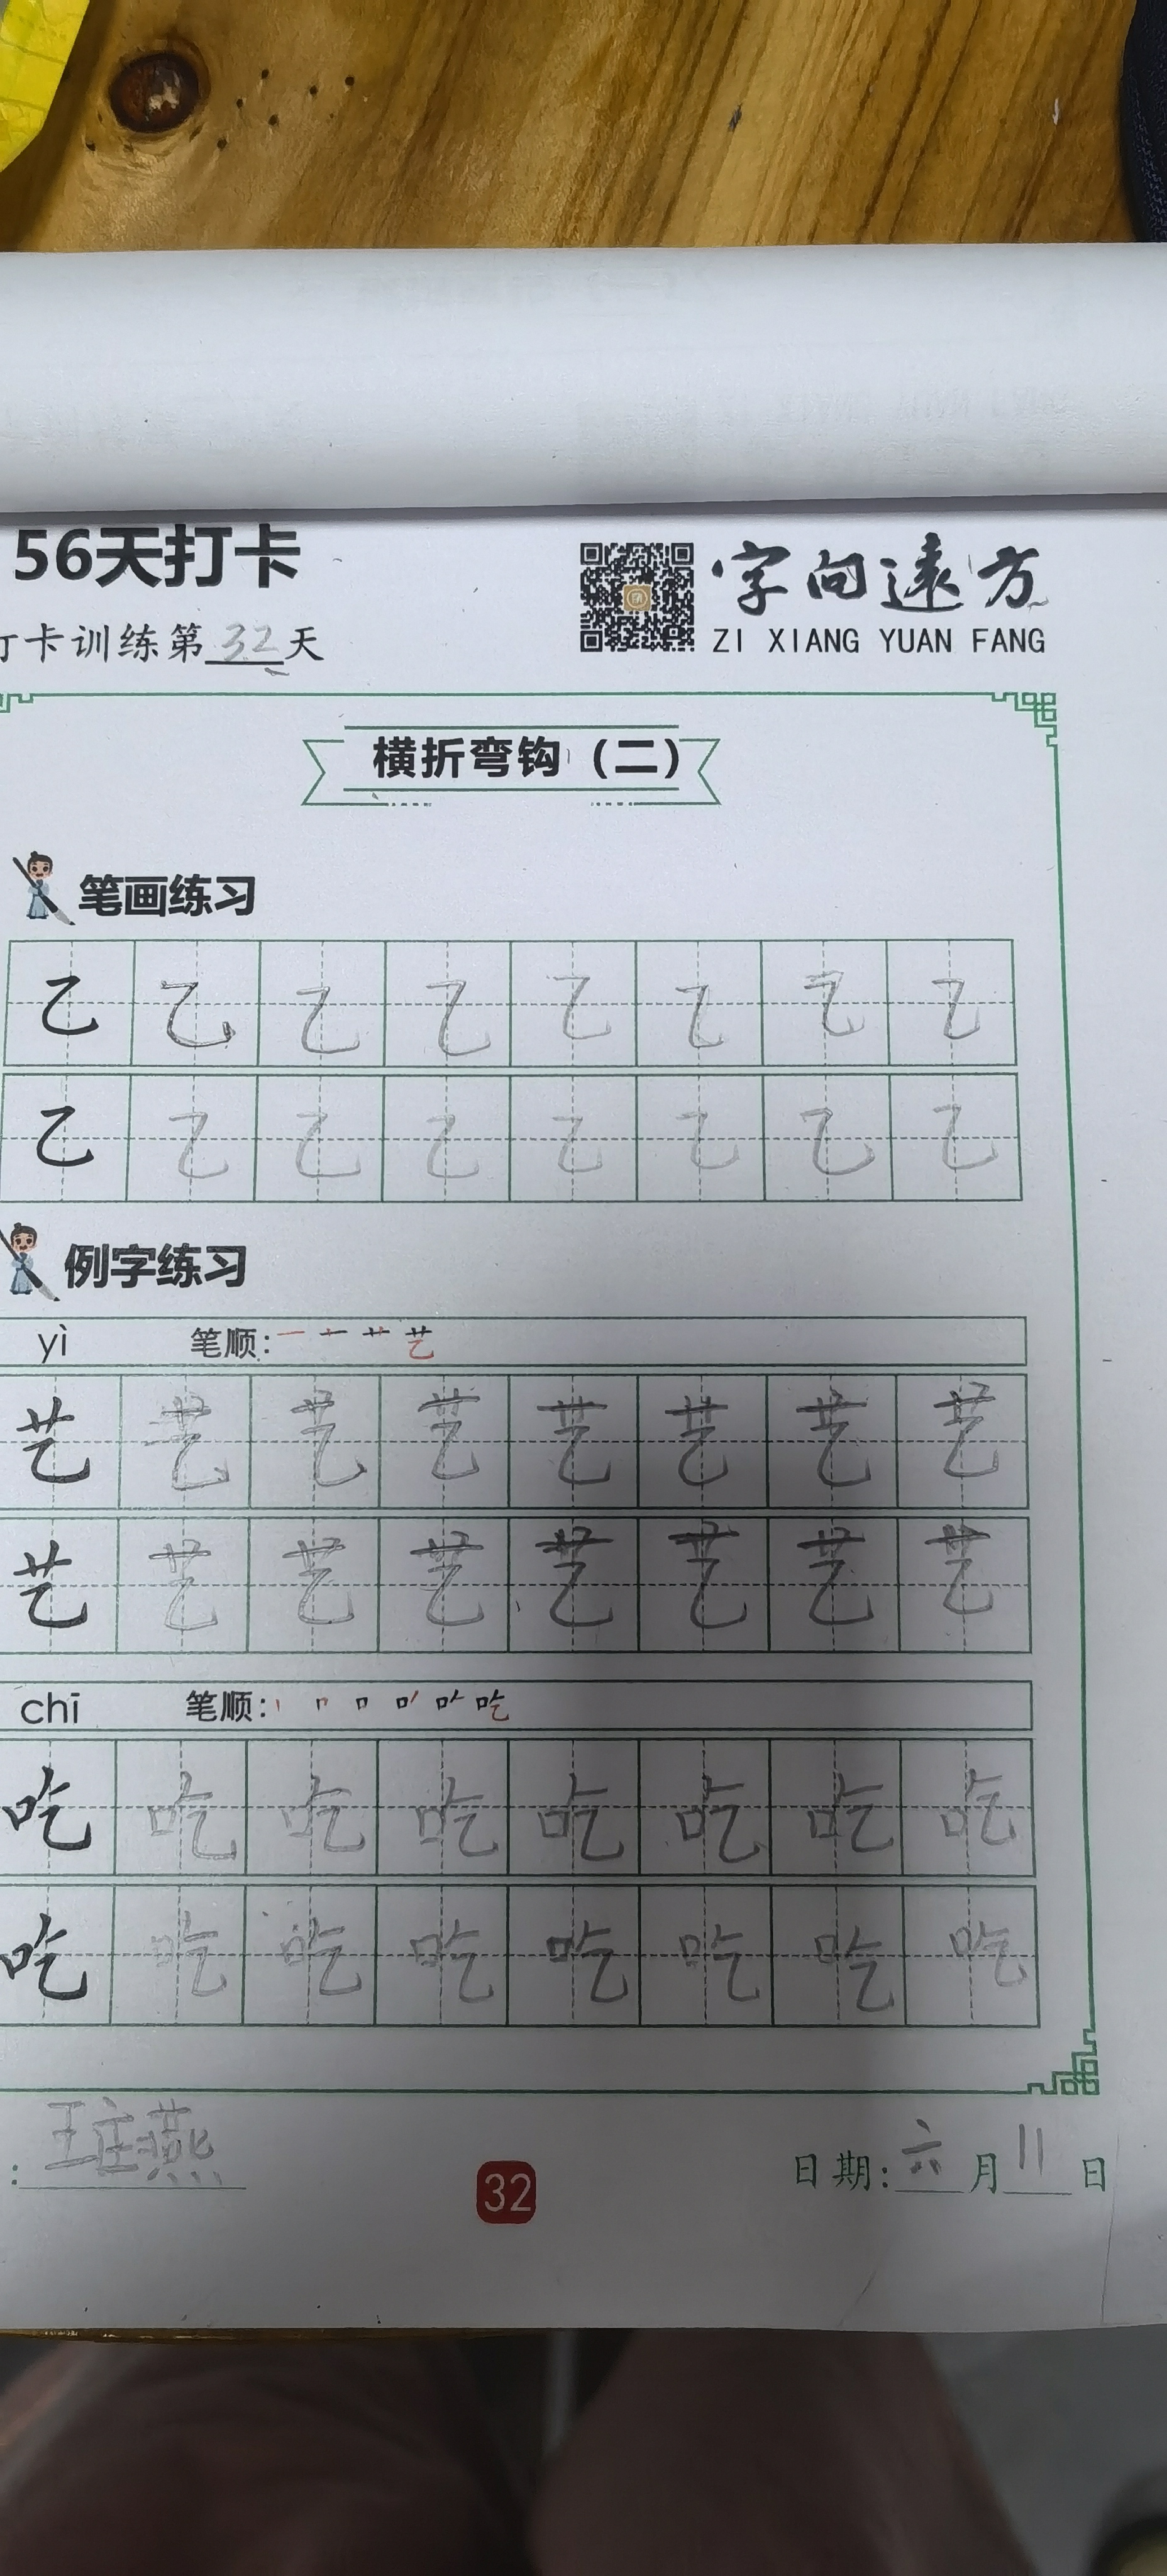 56天打卡
字向远方
打卡训练第32天
ZI XIANG YUAN FANG
横折弯钩（二）
笔画练习
乙 乙 乙 乙 乙 乙 乙 乙
乙 乙 乙 乙 乙 乙 乙 乙
例字练习
yì 笔顺：一 十 艹 艺
艺 艺 艺 艺 艺 艺 艺 艺
艺 艺 艺 艺 艺 艺 艺 艺
chī 笔顺：丨 𠃍 口 吃
吃 吃 吃 吃 吃 吃 吃 吃
吃 吃 吃 吃 吃 吃 吃 吃
: 王庄燕
32
日期:六月11日